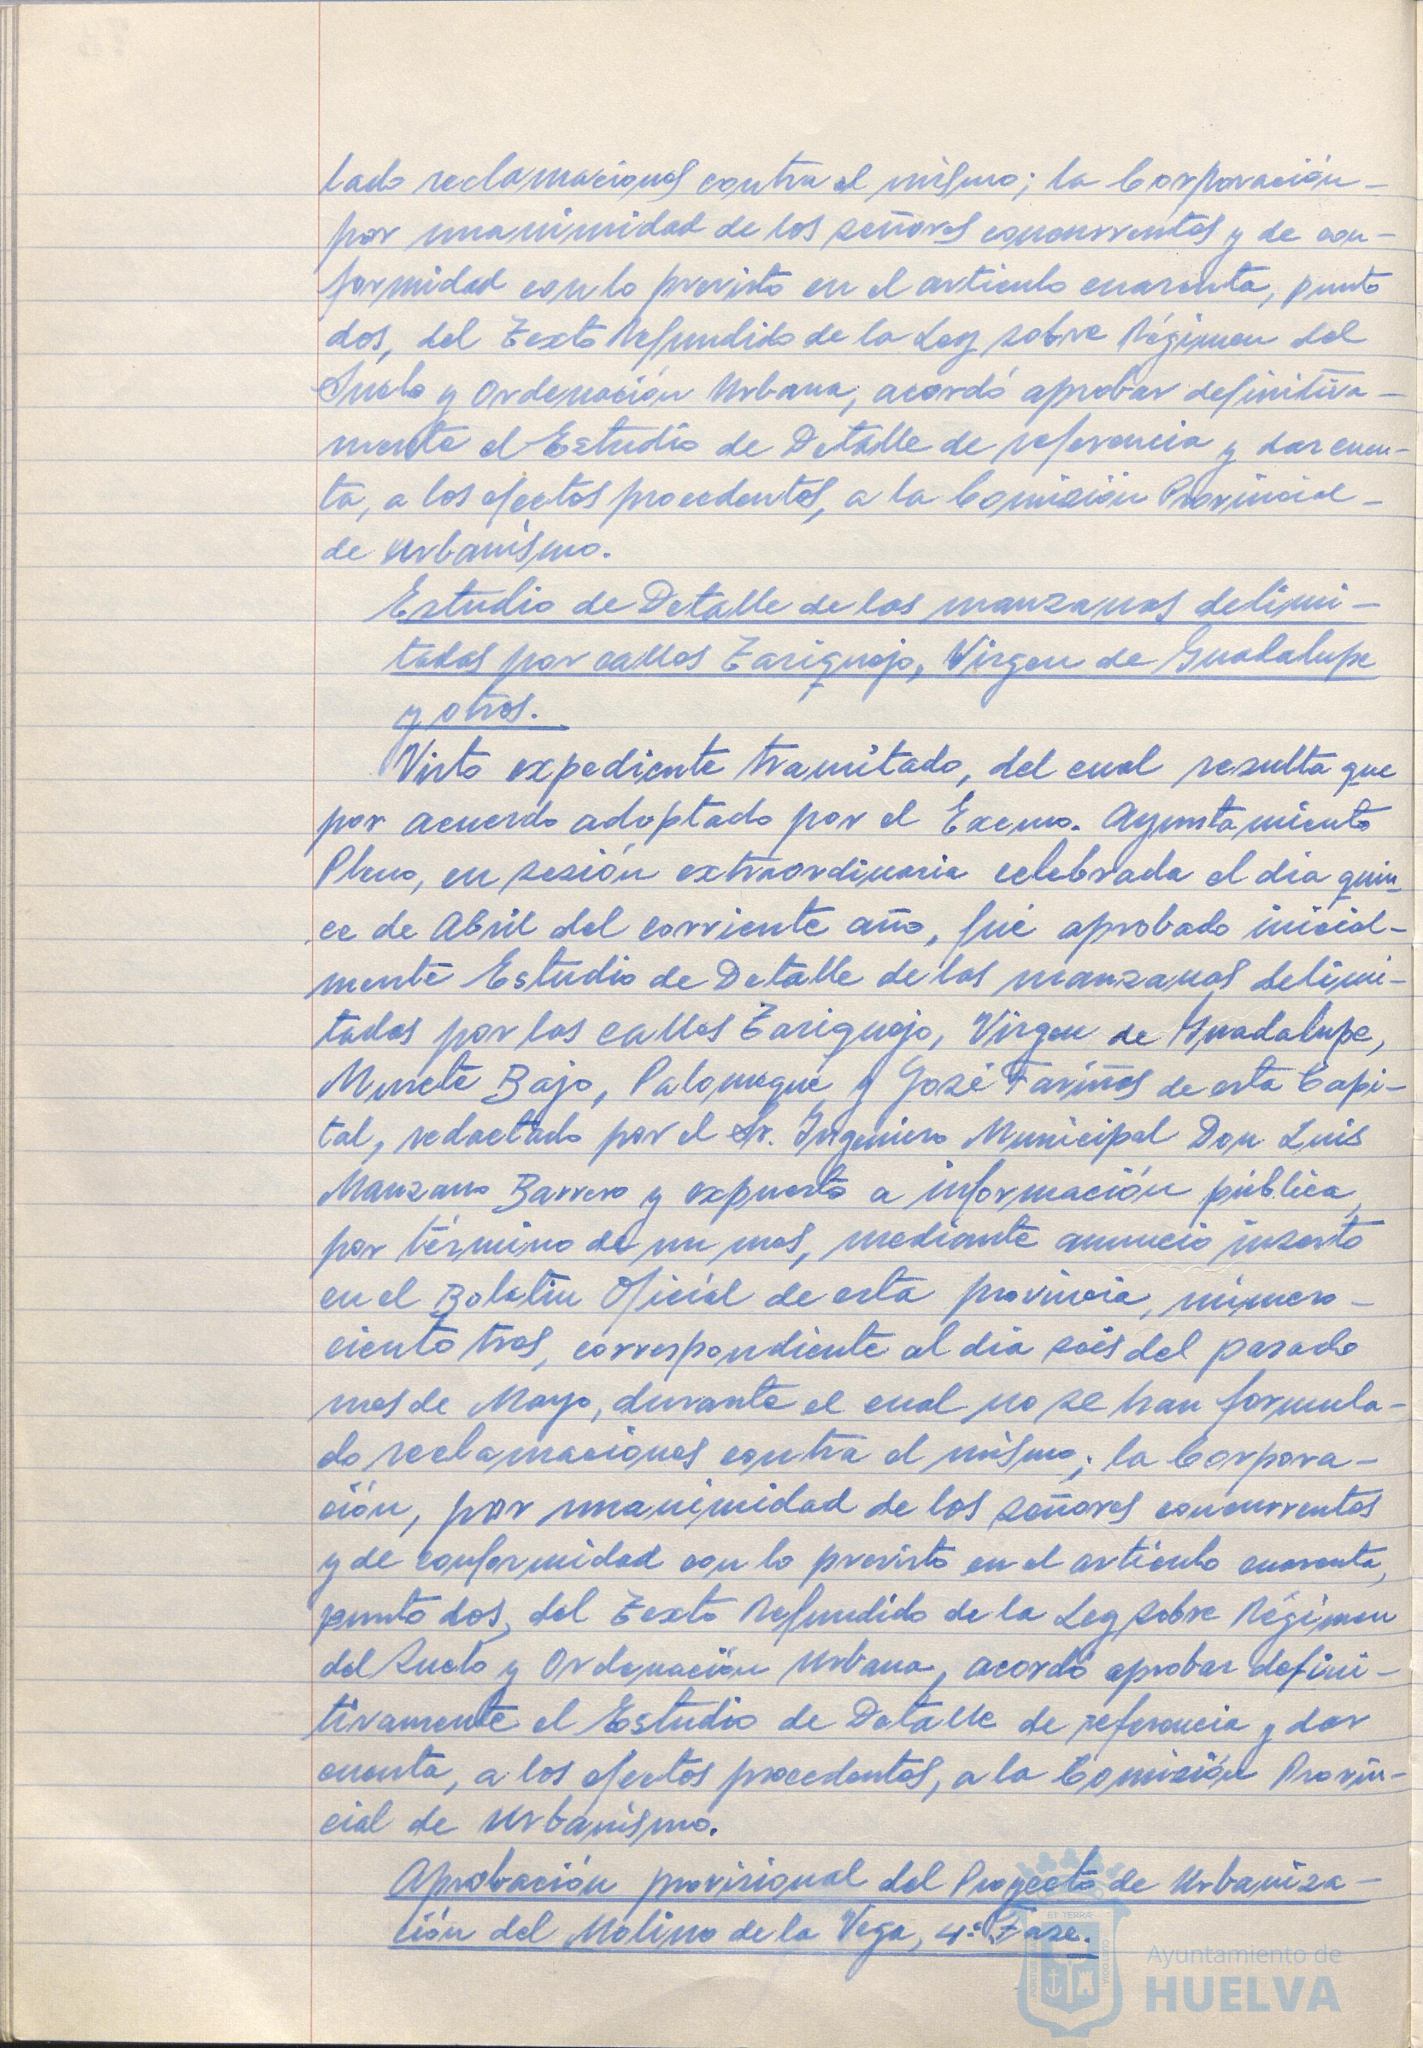 lado reclamaciones contra el mismo; la Corporación -
por unanimidad de los señores concurrentes y de con-
formidad con lo previsto en el artículo cuarenta, punto
dos, del Texto Refundido de la Ley sobre Régimen del
Suelo y Ordenación Urbana, acordó aprobar definitiva-
mente el Estudio de Detalle de referencia y dar cuen-
ta, a los efectos procedentes, a la Comisión Provincial -
de Urbanismo.
Estudio de Detalle de las manzanas delimi-
tadas por calles Zariquejo, Virgen de Guadalupe
y otras.
Visto expediente tramitado, del cual resulta que
por acuerdo adoptado por el Excmo. Ayuntamiento
Pleno, en sesión extraordinaria celebrada el dia quin-
ce de Abril del corriente año, fué aprobado inicial-
mente Estudio de Detalle de las manzanas delimi-
tadas por las calles Zariquejo, Virgen de Guadalupe,
Murcte Bajo, Palomeque y José Fariñas de esta Capi-
tal, redactado por el Sr. Ingeniero Municipal Don Luis
Manzano Barrero y expuesto a información pública,
por término de un mes, mediante anuncio inserto
en el Boletin Oficial de esta provincia, número -
ciento tres, correspondiente al dia seis del pasado
mes de Mayo, durante el cual no se han formula-
do reclamaciones contra el mismo; la Corpora-
ción, por unanimidad de los señores concurrentes
y de conformidad con lo previsto en el artículo cuarenta,
punto dos, del Texto Refundido de la Ley sobre Régimen
del Suelo y Ordenación Urbana, acordó aprobar defini-
tivamente el Estudio de Detalle de referencia y dar
cuenta, a los efectos procedentes, a la Comisión Provin-
cial de Urbanismo.
Aprobación provisional del Proyecto de Urbaniza-
ción del Molino de la Vega, 4ª Fase.
Ayuntamiento de
HUELVA